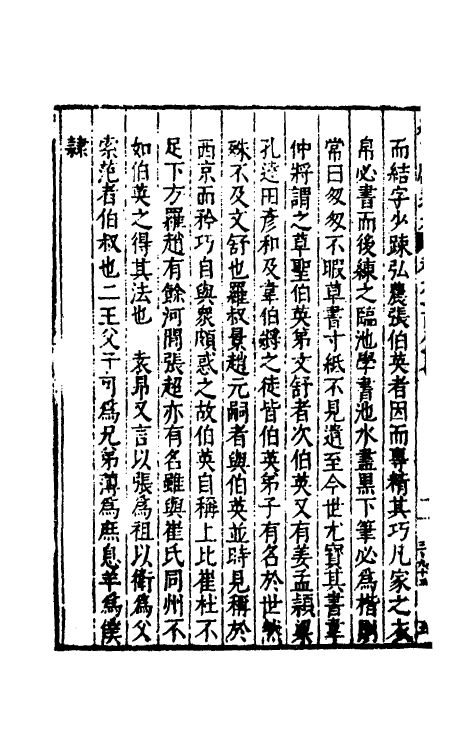 而結字少疎弘農張伯英者因而專精其巧凡家之衣
帛必書而後練之臨池學書池水盡黑下筆必爲楷則
常曰匆匆不暇草書寸紙不見遺至今世尤寶其書韋
仲將謂之草聖伯英弟文舒者次伯英又有姜孟穎梁
孔逵田彥和及韋伯將之徒皆伯英弟子有名於世然
殊不及文舒也羅叔景趙元嗣者與伯英並時見稱於
西京而矜巧自與衆頗惑之故伯英自稱上比崔杜不
足下方羅趙有餘河間張超亦有名雖與崔氏同州不
如伯英之得其法也　袁昂又言以張爲祖以衛爲父
索范者伯叔也二王父子可爲兄弟薄爲庶息羊爲僕
隷